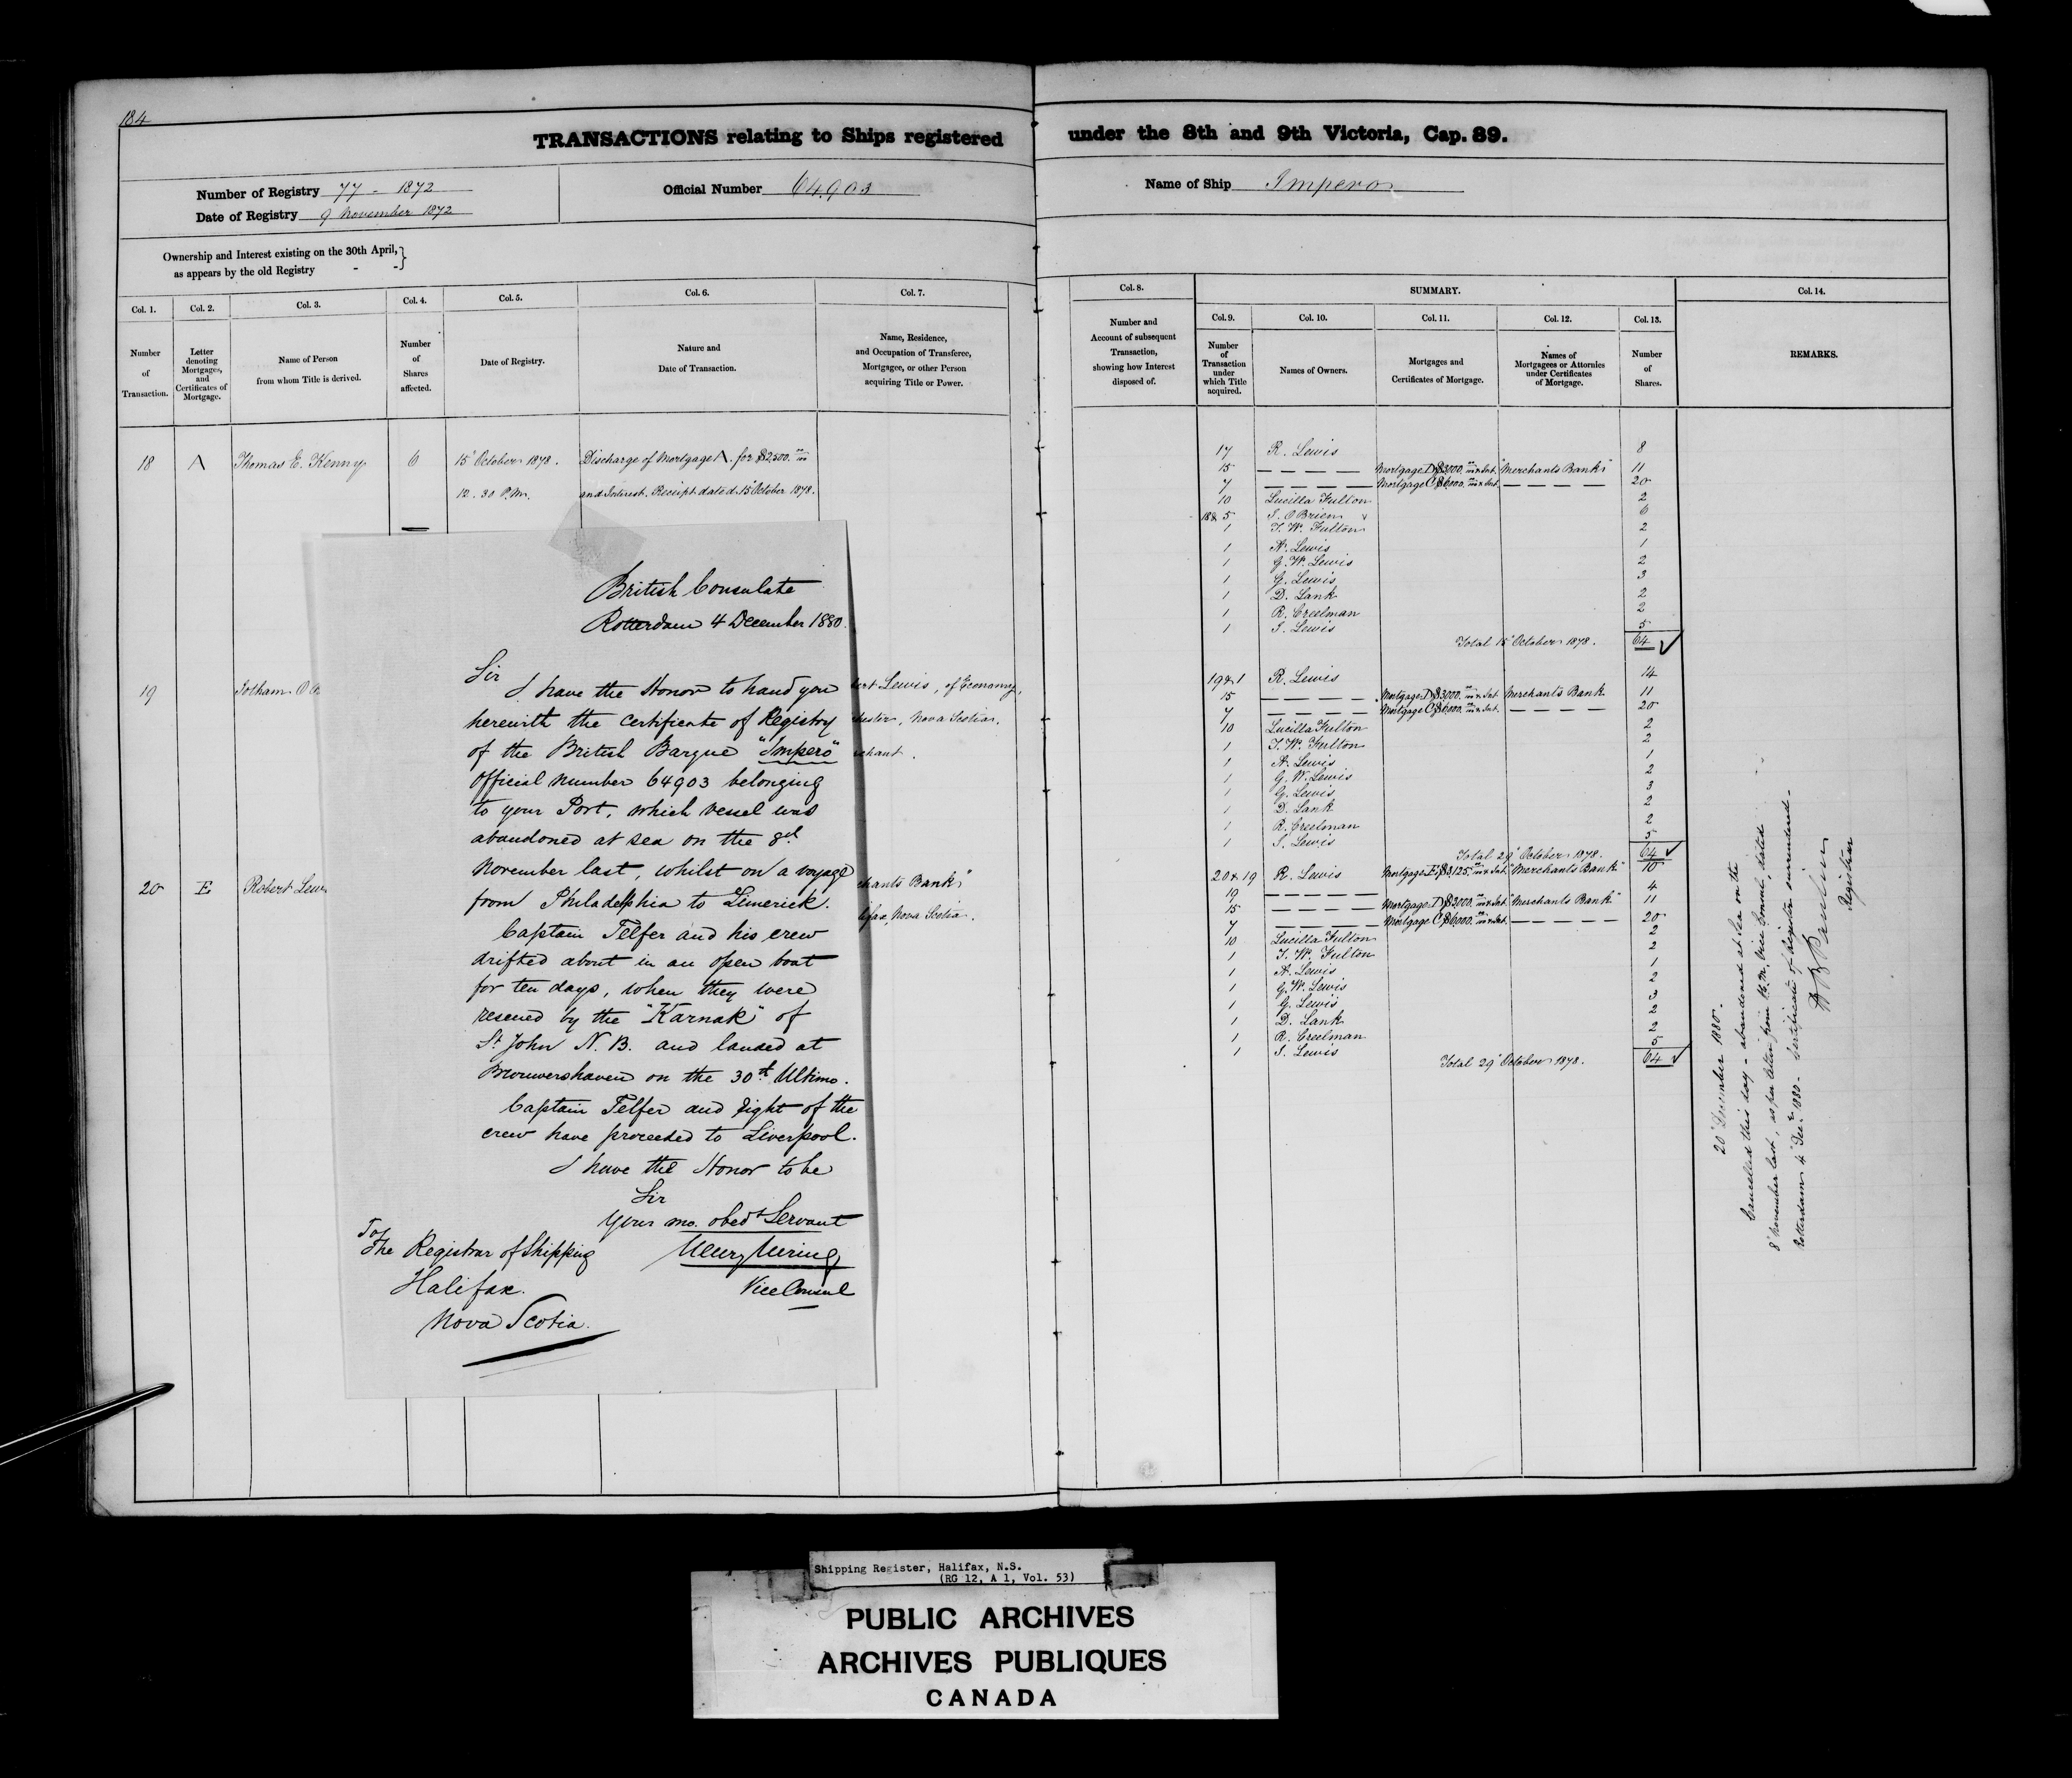 184
TRANSACTIONS relating to Ships registered under the 8th and 9th Victoria, Cap. 89.
Number of Registry 77 - 1872
Date of Registry 9 November 1872
Official Number 64,903
Name of Ship Impero
Ownership and Interest existing on the 30th April,
as appears by the old Registry - -
Col. 1. Col. 2. Col. 3. Col. 4. Col. 5. Col. 6. Col. 7.
Number of Transaction.
Letter denoting Mortgages, and Certificates of Mortgage.
Name of Person from whom Title is derived.
Number of Shares affected.
Date of Registry.
Nature and Date of Transaction.
Name, Residence, and Occupation of Transferee, Mortgagee, or other Person acquiring Title or Power.
18 A Thomas E. Kenny 6 15" October 1878. Discharge of Mortgage A. for $2,500.
12.30 P.M. and Interest. Receipt dated 15" October 1878.
19 Jotham O'B
bert Lewis, of Economy,
chester, Nova Scotia.
chant.
20 E Robert Lew
chants Bank"
lifax, Nova Scotia.
British Consulate
Rotterdam 4 December 1880.
Sir
I have the Honor to hand you
herewith the Certificate of Registry
of the British Barque "Impero"
Official Number 64903 belonging
to your Port, which vessel was
abandoned at sea on the 8th
November last, whilst on a voyage
from Philadelphia to Limerick.
Captain Telfer and his crew
drifted about in an open boat
for ten days, when they were
rescued by the "Karnak" of
St John N.B. and landed at
Brouwershaven on the 30th Ultimo.
Captain Telfer and Eight of the
crew have proceeded to Liverpool.
I have the Honor to be
Sir
Your mo. obedt Servant
Vice Consul
To
The Registrar of Shipping
Halifax.
Nova Scotia.
Col. 8. SUMMARY. Col. 14.
Col. 9. Col. 10. Col. 11. Col. 12. Col. 13.
Number and Account of subsequent Transaction, showing how Interest disposed of.
Number of Transaction under which Title acquired.
Names of Owners.
Mortgages and Certificates of Mortgage.
Names of Mortgagees or Attornies under Certificates of Mortgage.
Number of Shares.
REMARKS.
17 R. Lewis 8
15 — — — — Mortgage D $3000. & Int. "Merchants Bank" 11
7 — — — — Mortgage C $6000. & Int. — — — — 20
10 Lucilla Fulton 2
18 & 5 J. O'Brien 6
1 J. W. Fulton 2
1 A. Lewis 1
1 G. W. Lewis 2
1 G. Lewis 3
1 D. Lank 2
1 R. Creelman 2
1 J. Lewis 5
Total 15" October 1878. 64 ✓
19 & 1 R. Lewis 14
15 — — — — Mortgage D $3000. & Int. Merchants Bank 11
7 — — — — Mortgage C $6,000. & Int. — — — — 20
10 Lucilla Fulton 2
1 J. W. Fulton 2
1 A. Lewis 1
1 G. W. Lewis 2
1 G. Lewis 3
1 D. Lank 2
1 R. Creelman 2
1 J. Lewis 5
Total 29" October 1878. 64 ✓
20 & 19 R. Lewis Mortgage E $3,125. & Int. "Merchants Bank" 10
19 — — — — 4
15 — — — — Mortgage D $3000. & Int. "Merchants Bank" 11
7 — — — — Mortgage C $6000. & Int. — — — — 20
10 Lucilla Fulton 2
1 J. W. Fulton 2
1 A. Lewis 1
1 G. W. Lewis 2
1 G. Lewis 3
1 D. Lank 2
1 R. Creelman 2
1 J. Lewis 5
Total 29" October 1878. 64 ✓
20" December 1880.
Cancelled this day - abandoned at Sea on the
8" November last, as per letter from H.B.M. Vice Consul, dated
Rotterdam 4" Decr 1880 - Certificate of Registry surrendered -
Registrar
Shipping Register, Halifax, N.S.
(RG 12, A 1, Vol. 53)
PUBLIC ARCHIVES
ARCHIVES PUBLIQUES
CANADA